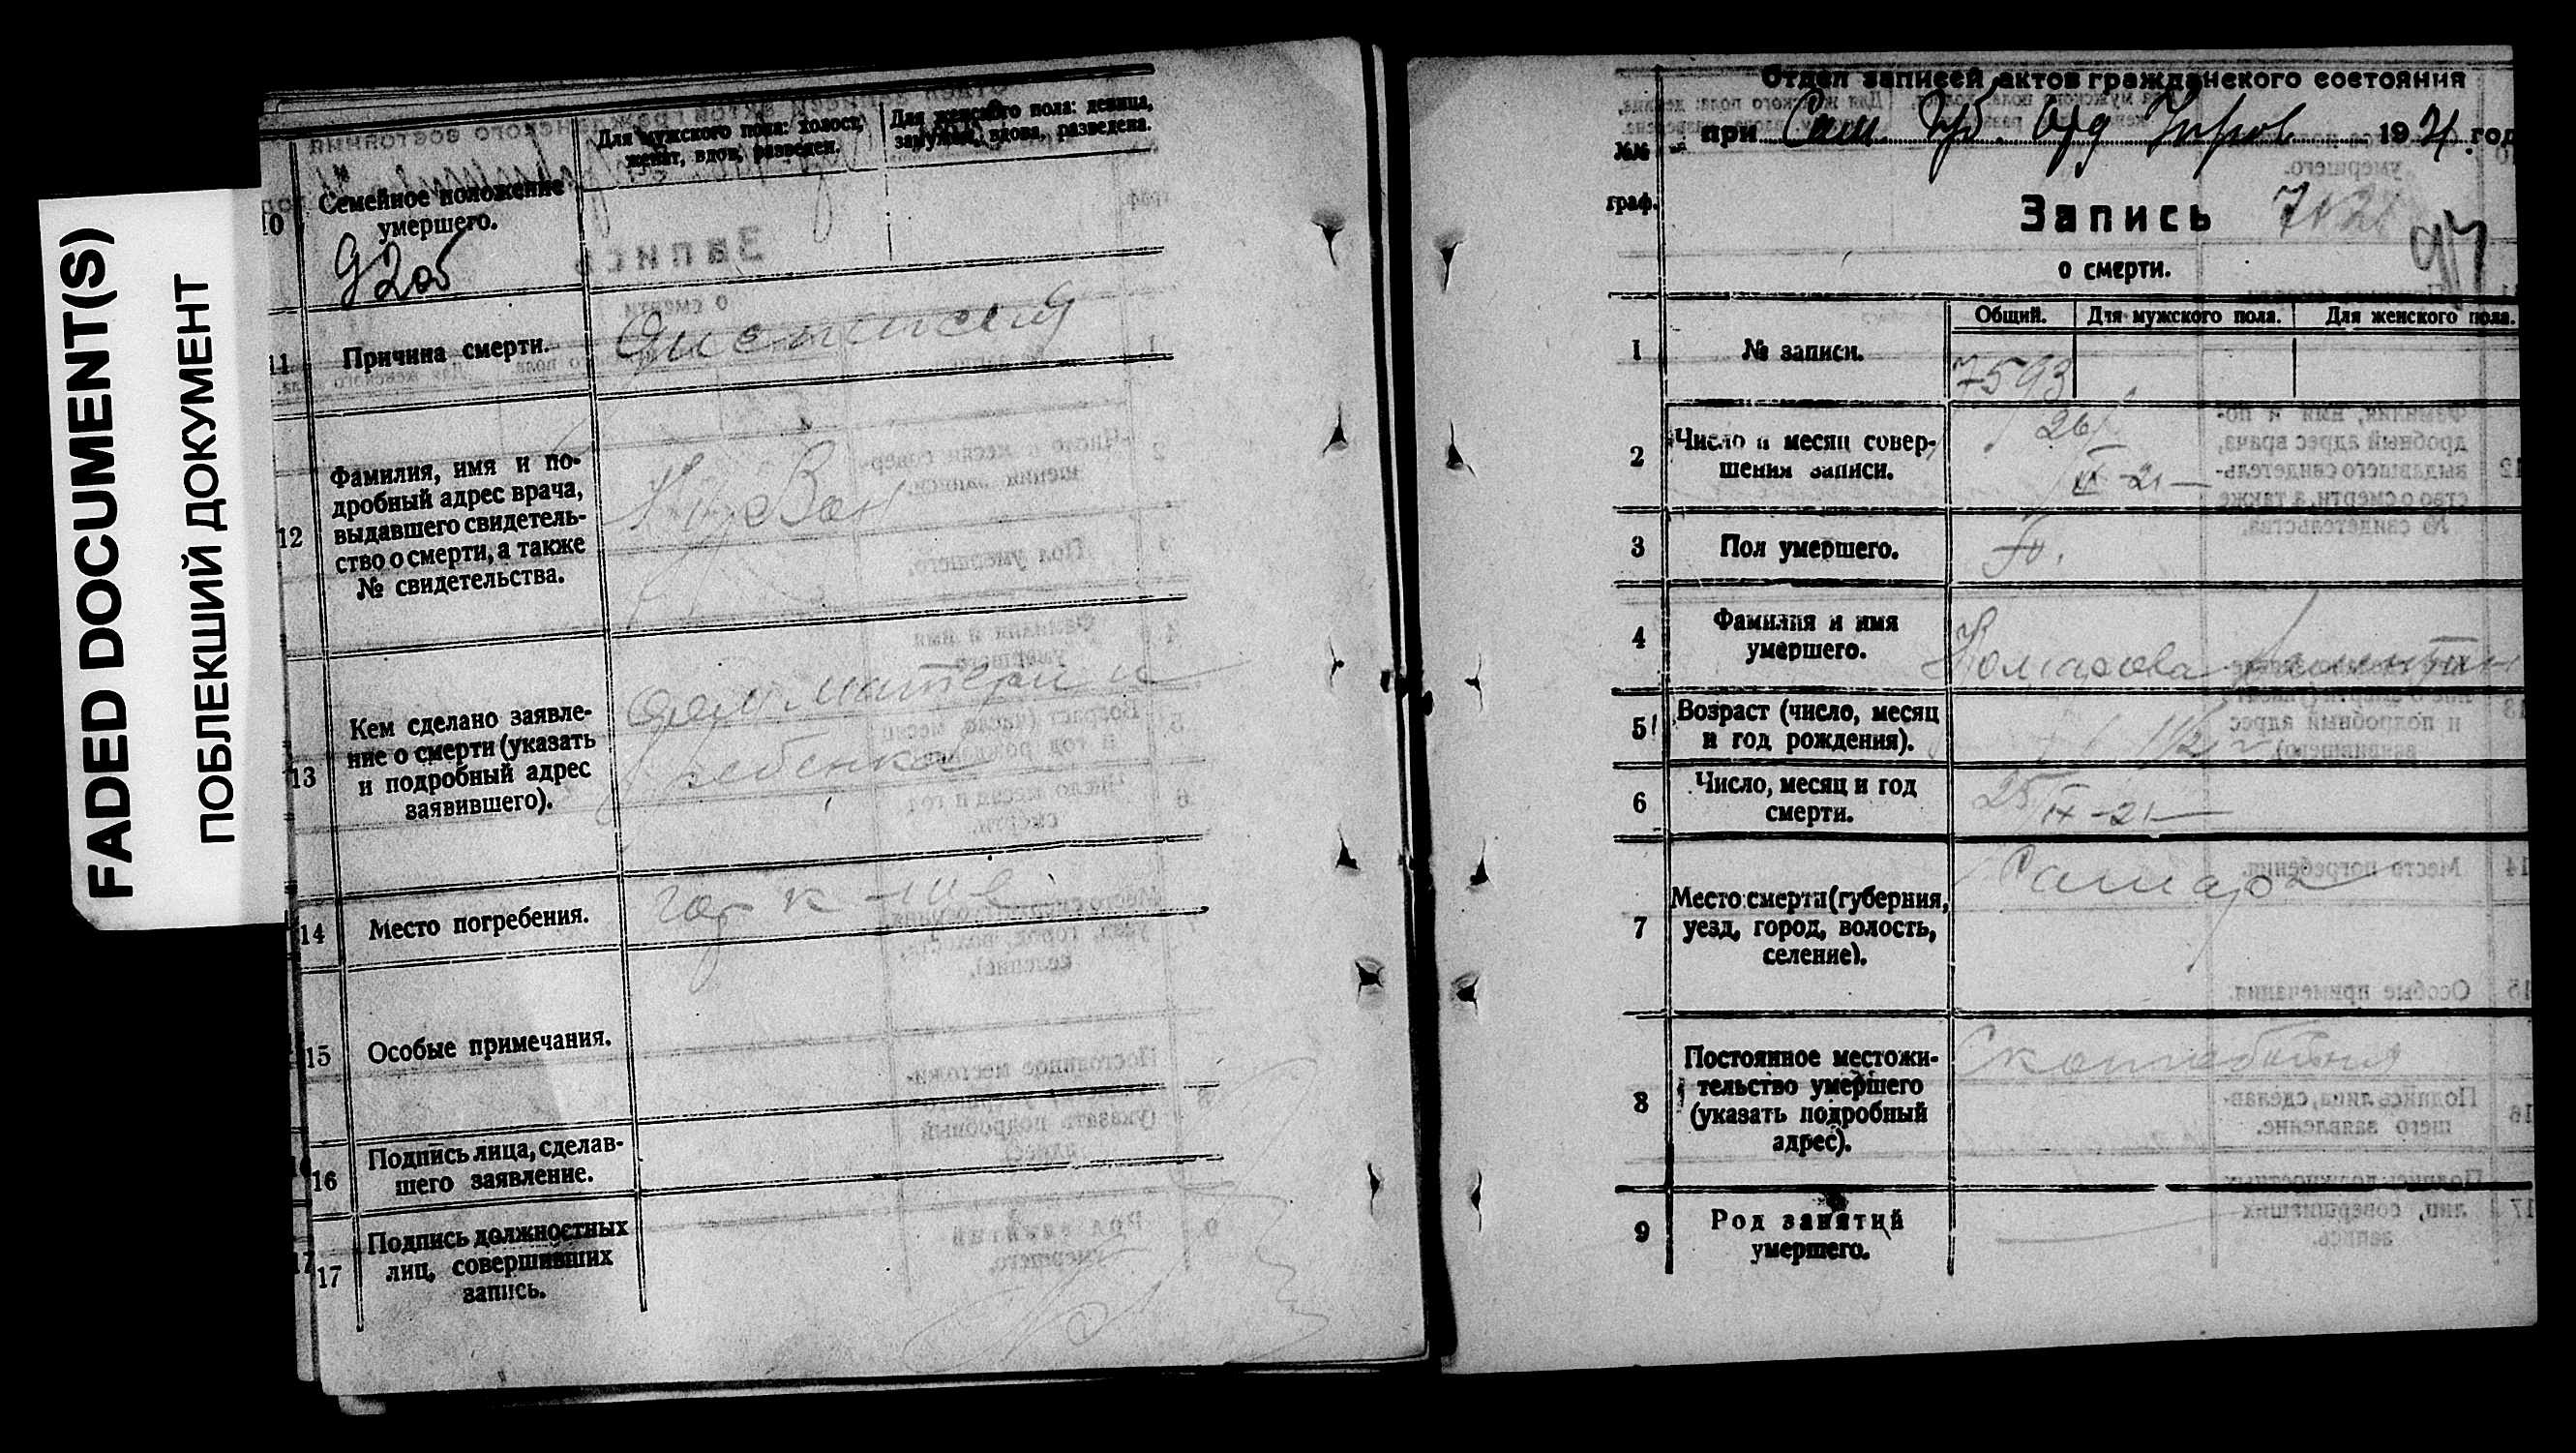 FADED DOCUMENT(S)
ПОБЛЕКШИЙ ДОКУМЕНТ
10
Семейное положение
умершего.
Для мужского пола: холост,
женат, вдов, разведен.
Для женского пола: девица,
замужем, вдова, разведена.
11
Причина смерти.
12
Фамилия, имя и по-
дробный адрес врача,
выдавшего свидетель-
ство о смерти, а также
№ свидетельства.
13
Кем сделано заявле-
ние о смерти (указать
и подробный адрес
заявившего).
дом матери и
ребенка
14
Место погребения.
гор к-ще
15
Особые примечания.
16
Подпись лица, сделав-
шего заявление.
17
Подпись должностных
лиц, совершивших
запись.
Отдел записей актов гражданского состояния
№№
граф.
при Сам Губ. 1921 год
Запись
о смерти.
1
№ записи.
Общий.
Для мужского пола.
Для женского пола.
7593
2
Число и месяц совер-
шения записи.
26/
IX-21
3
Пол умершего.
ж.
4
Фамилия и имя
умершего.
5
Возраст (число, месяц
и год рождения).
1 1/2 г
6
Число, месяц и год
смерти.
25/IX-21
7
Место смерти (губерния,
уезд, город, волость,
селение).
Самара
8
Постоянное местожи-
тельство умершего
(указать подробный
адрес).
9
Род занятий
умершего.